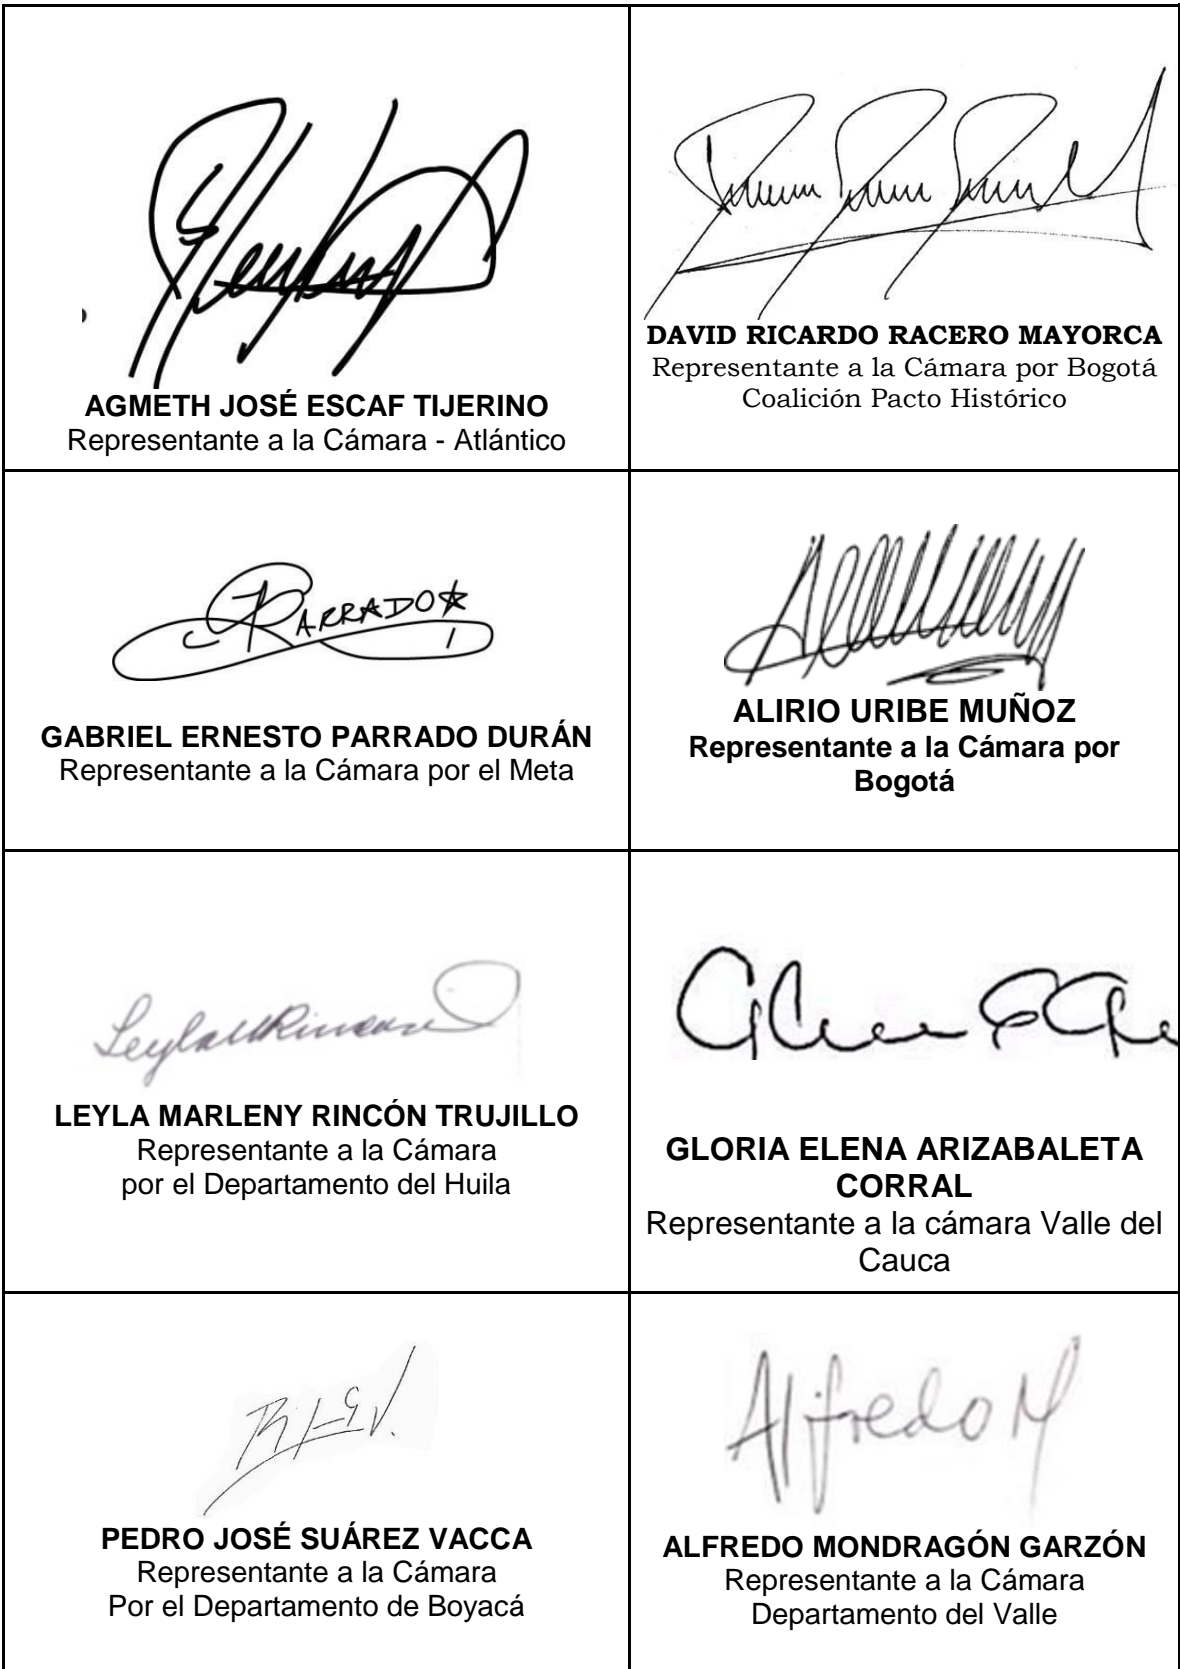 AGMETH JOSÉ ESCAF TIJERINO
Representante a la Cámara - Atlántico
DAVID RICARDO RACERO MAYORCA
Representante a la Cámara por Bogotá
Coalición Pacto Histórico
PARRADO
GABRIEL ERNESTO PARRADO DURÁN
Representante a la Cámara por el Meta
ALIRIO URIBE MUÑOZ
Representante a la Cámara por
Bogotá
LEYLA MARLENY RINCÓN TRUJILLO
Representante a la Cámara
por el Departamento del Huila
GLORIA ELENA ARIZABALETA
CORRAL
Representante a la cámara Valle del
Cauca
PEDRO JOSÉ SUÁREZ VACCA
Representante a la Cámara
Por el Departamento de Boyacá
Alfredo M
ALFREDO MONDRAGÓN GARZÓN
Representante a la Cámara
Departamento del Valle